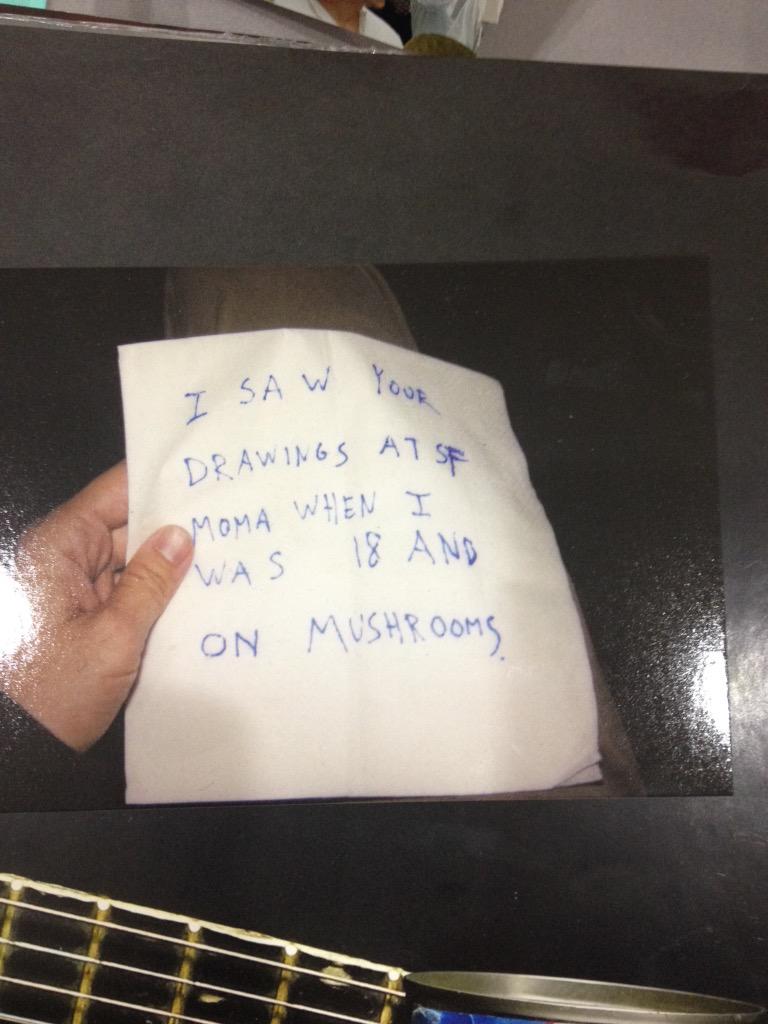 I SAW YOUR
DRAWINGS AT SF
MOMA WHEN I
WAS 18 AND
ON MUSHROOMS.